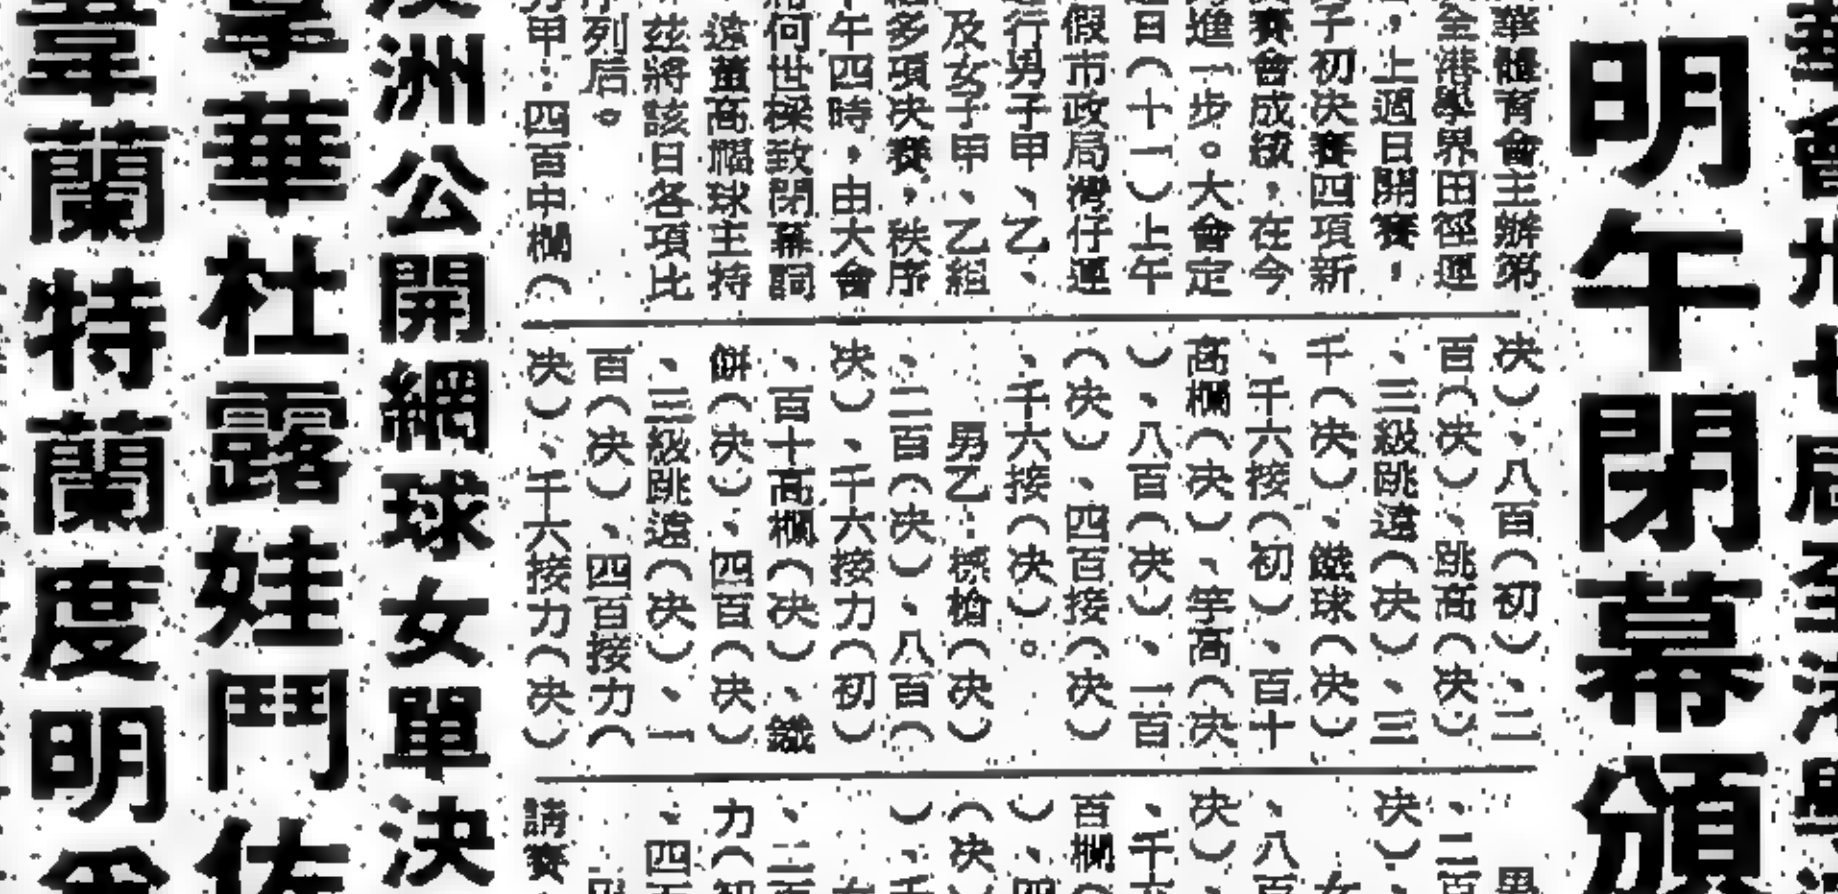 華會卅七屆全港學
明午閉幕頒
華體育會主辦第
全港學界田徑運
，上週日開賽，
子初决賽四項新
賽會成績，在今
進一步。大會定
日（十一）上午
假市政局灣仔運
行男子甲、乙、
及女子甲、乙組
多項决賽，秩序
午四時，由大會
何世樑致閉幕詞
遠董高福球主持
茲將該日各項比
列后。
甲：四百中欄（
决）、八百（初）、二
百（决）、跳高（决）
、三級跳遠（决）、三
千（决）、鐵球（决）
、千六接（初）、百十
高欄（决）、竿高（决
）、八百（决）、一百
（决）、四百接（决）
、千六接（决）。
男乙：標槍（决）
、二百（决）、八百（
决）、千六接力（初）
、百十高欄（决）、鐵
餅（决）、四百（决）
、三級跳遠（决）、一
百（决）、四百接力（
决）、千六接力（决）
男
、二百
决）、
、八百
决）、
、千六
百欄（
）、四
（决
）、千
、二百
力（初
、四百
請賽
澳洲公開網球女單決
拿華杜露娃鬥佐
韋蘭特蘭度明爭